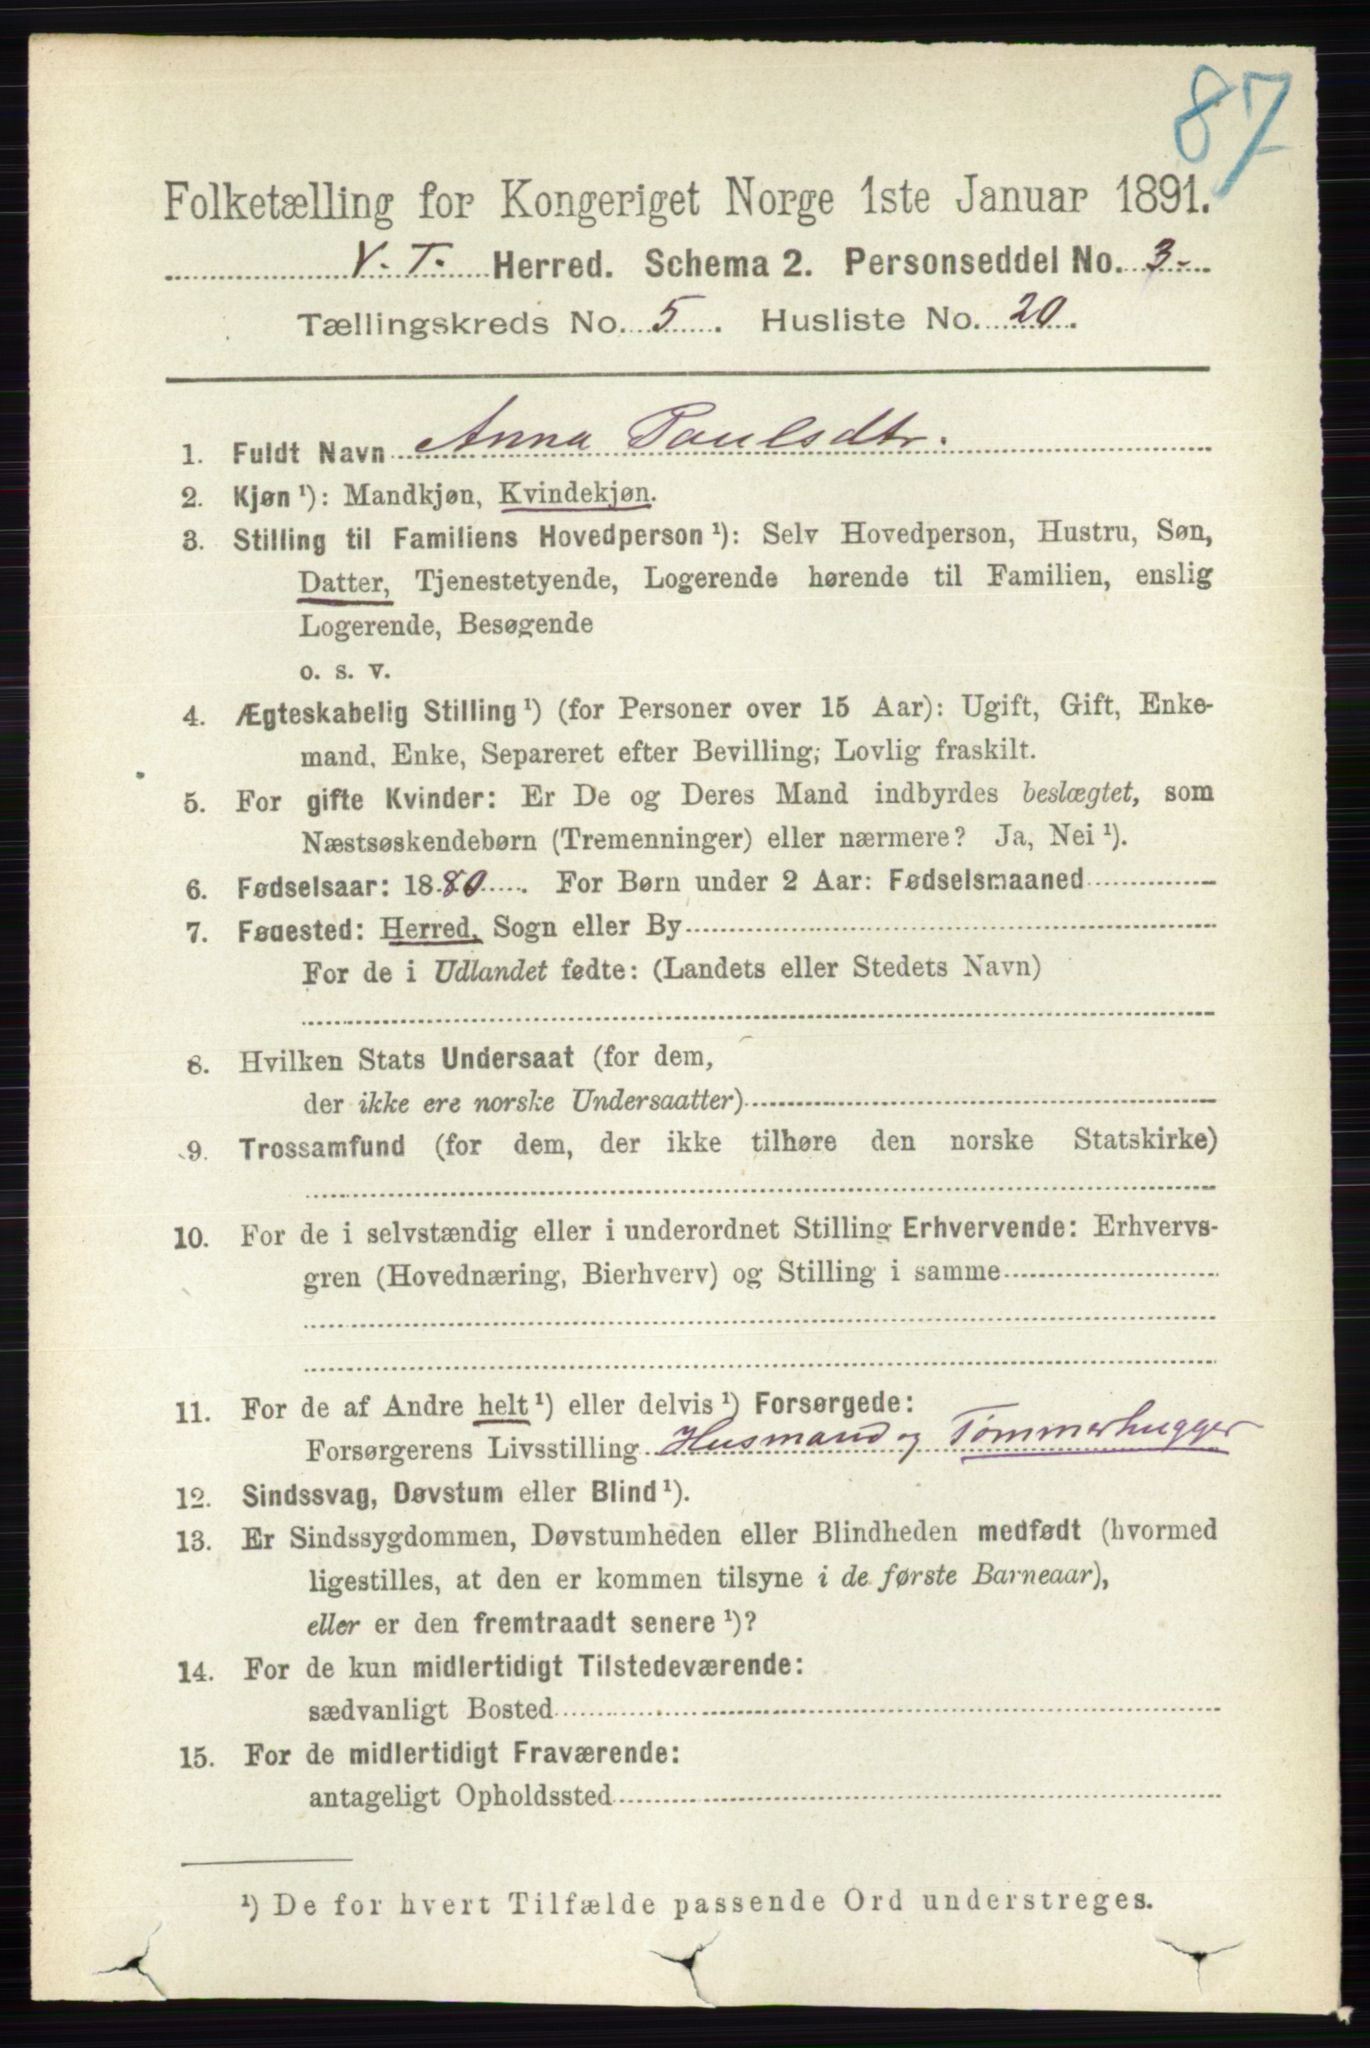 87
Folketælling for Kongeriget Norge 1ste Januar 1891.
V. T. Herred. Schema 2. Personseddel No. 3-
Tællingskreds No. 5. Husliste No. 20.
1. Fuldt Navn Anna Paulsdtr.
2. Kjøn ¹): Mandkjøn, Kvindekjøn.
3. Stilling til Familiens Hovedperson ¹): Selv Hovedperson, Hustru, Søn,
Datter, Tjenestetyende, Logerende hørende til Familien, enslig
Logerende, Besøgende
o. s. v.
4. Ægteskabelig Stilling ¹) (for Personer over 15 Aar): Ugift, Gift, Enke-
mand, Enke, Separeret efter Bevilling, Lovlig fraskilt.
5. For gifte Kvinder: Er De og Deres Mand indbyrdes beslægtet, som
Næstsøskendebørn (Tremenninger) eller nærmere? Ja, Nei ¹).
6. Fødselsaar: 1880. For Børn under 2 Aar: Fødselsmaaned
7. Fødested: Herred, Sogn eller By
For de i Udlandet fødte: (Landets eller Stedets Navn)
8. Hvilken Stats Undersaat (for dem,
der ikke ere norske Undersaatter)
9. Trossamfund (for dem, der ikke tilhøre den norske Statskirke)
10. For de i selvstændig eller i underordnet Stilling Erhvervende: Erhvervs-
gren (Hovednæring, Bierhverv) og Stilling i samme
11. For de af Andre helt ¹) eller delvis ¹) Forsørgede:
Forsørgerens Livsstilling Husmand og Tømmerhugger
12. Sindssvag, Døvstum eller Blind ¹).
13. Er Sindssygdommen, Døvstumheden eller Blindheden medfødt (hvormed
ligestilles, at den er kommen tilsyne i de første Barneaar),
eller er den fremtraadt senere ¹)?
14. For de kun midlertidigt Tilstedeværende:
sædvanligt Bosted
15. For de midlertidigt Fraværende:
antageligt Opholdssted
¹) De for hvert Tilfælde passende Ord understreges.